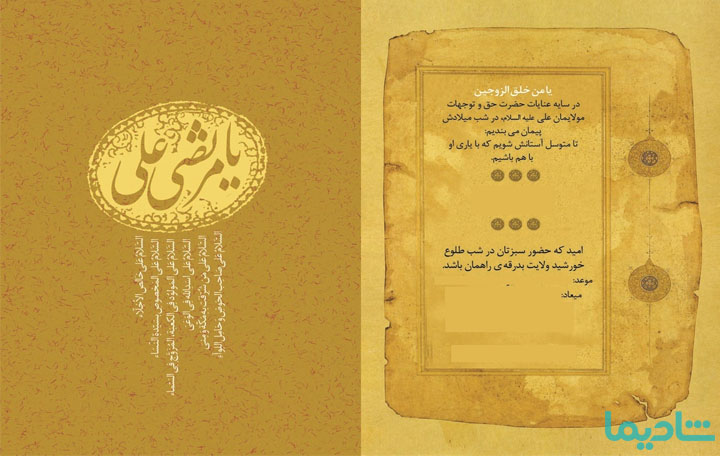 یا من خلق الزوجین
در سایه عنایات حضرت حق و توجهات
مولایمان علی علیه السلام، در شب میلادش
پیمان می بندیم:
تا متوسل آستانش شویم که با یاری او
با هم باشیم.
امید که حضور سبزتان در شب طلوع
خورشید ولایت بدرقه ی راهمان باشد.
موعد:
میعاد:
شادیما
یا مرتضی علی
السلام علی صاحب الحوض و حامل اللواء
السلام علی من شرفت به مکة و منی
السلام علی اسدالله فی الوغی
السلام علی المولود فی الکعبة، المزوج فی السماء،
السلام علی المخصوص بسیدة النساء
السلام علی خالص الاخلاء